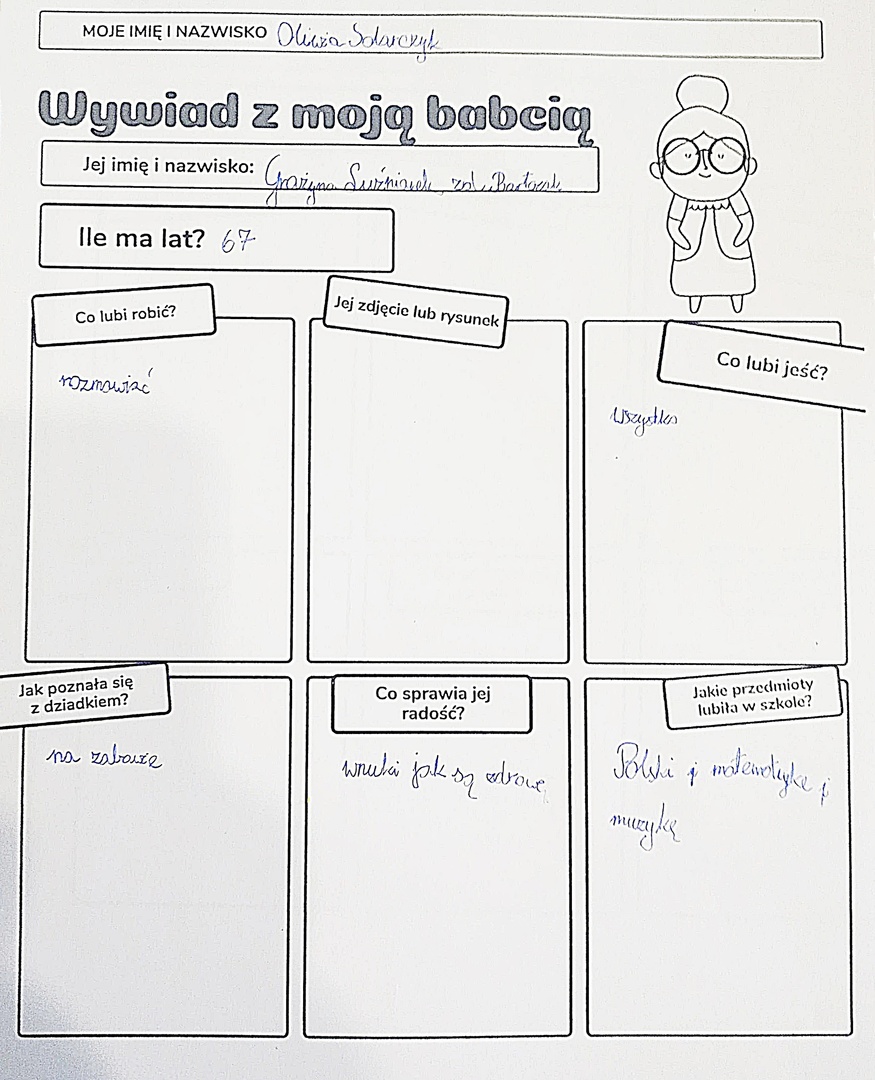 MOJE IMIĘ I NAZWISKO Oliwia Solarczyk
Wywiad z moją babcią
Jej imię i nazwisko: Grażyna
Ile ma lat? 67
Co lubi robić?
rozmawiać
Jej zdjęcie lub rysunek
Co lubi jeść?
Wszystko
Jak poznała się
z dziadkiem?
na zabawie
Co sprawia jej
radość?
wnuki jak są zdrowe
Jakie przedmioty
lubiła w szkole?
Polski i matematykę i
muzykę